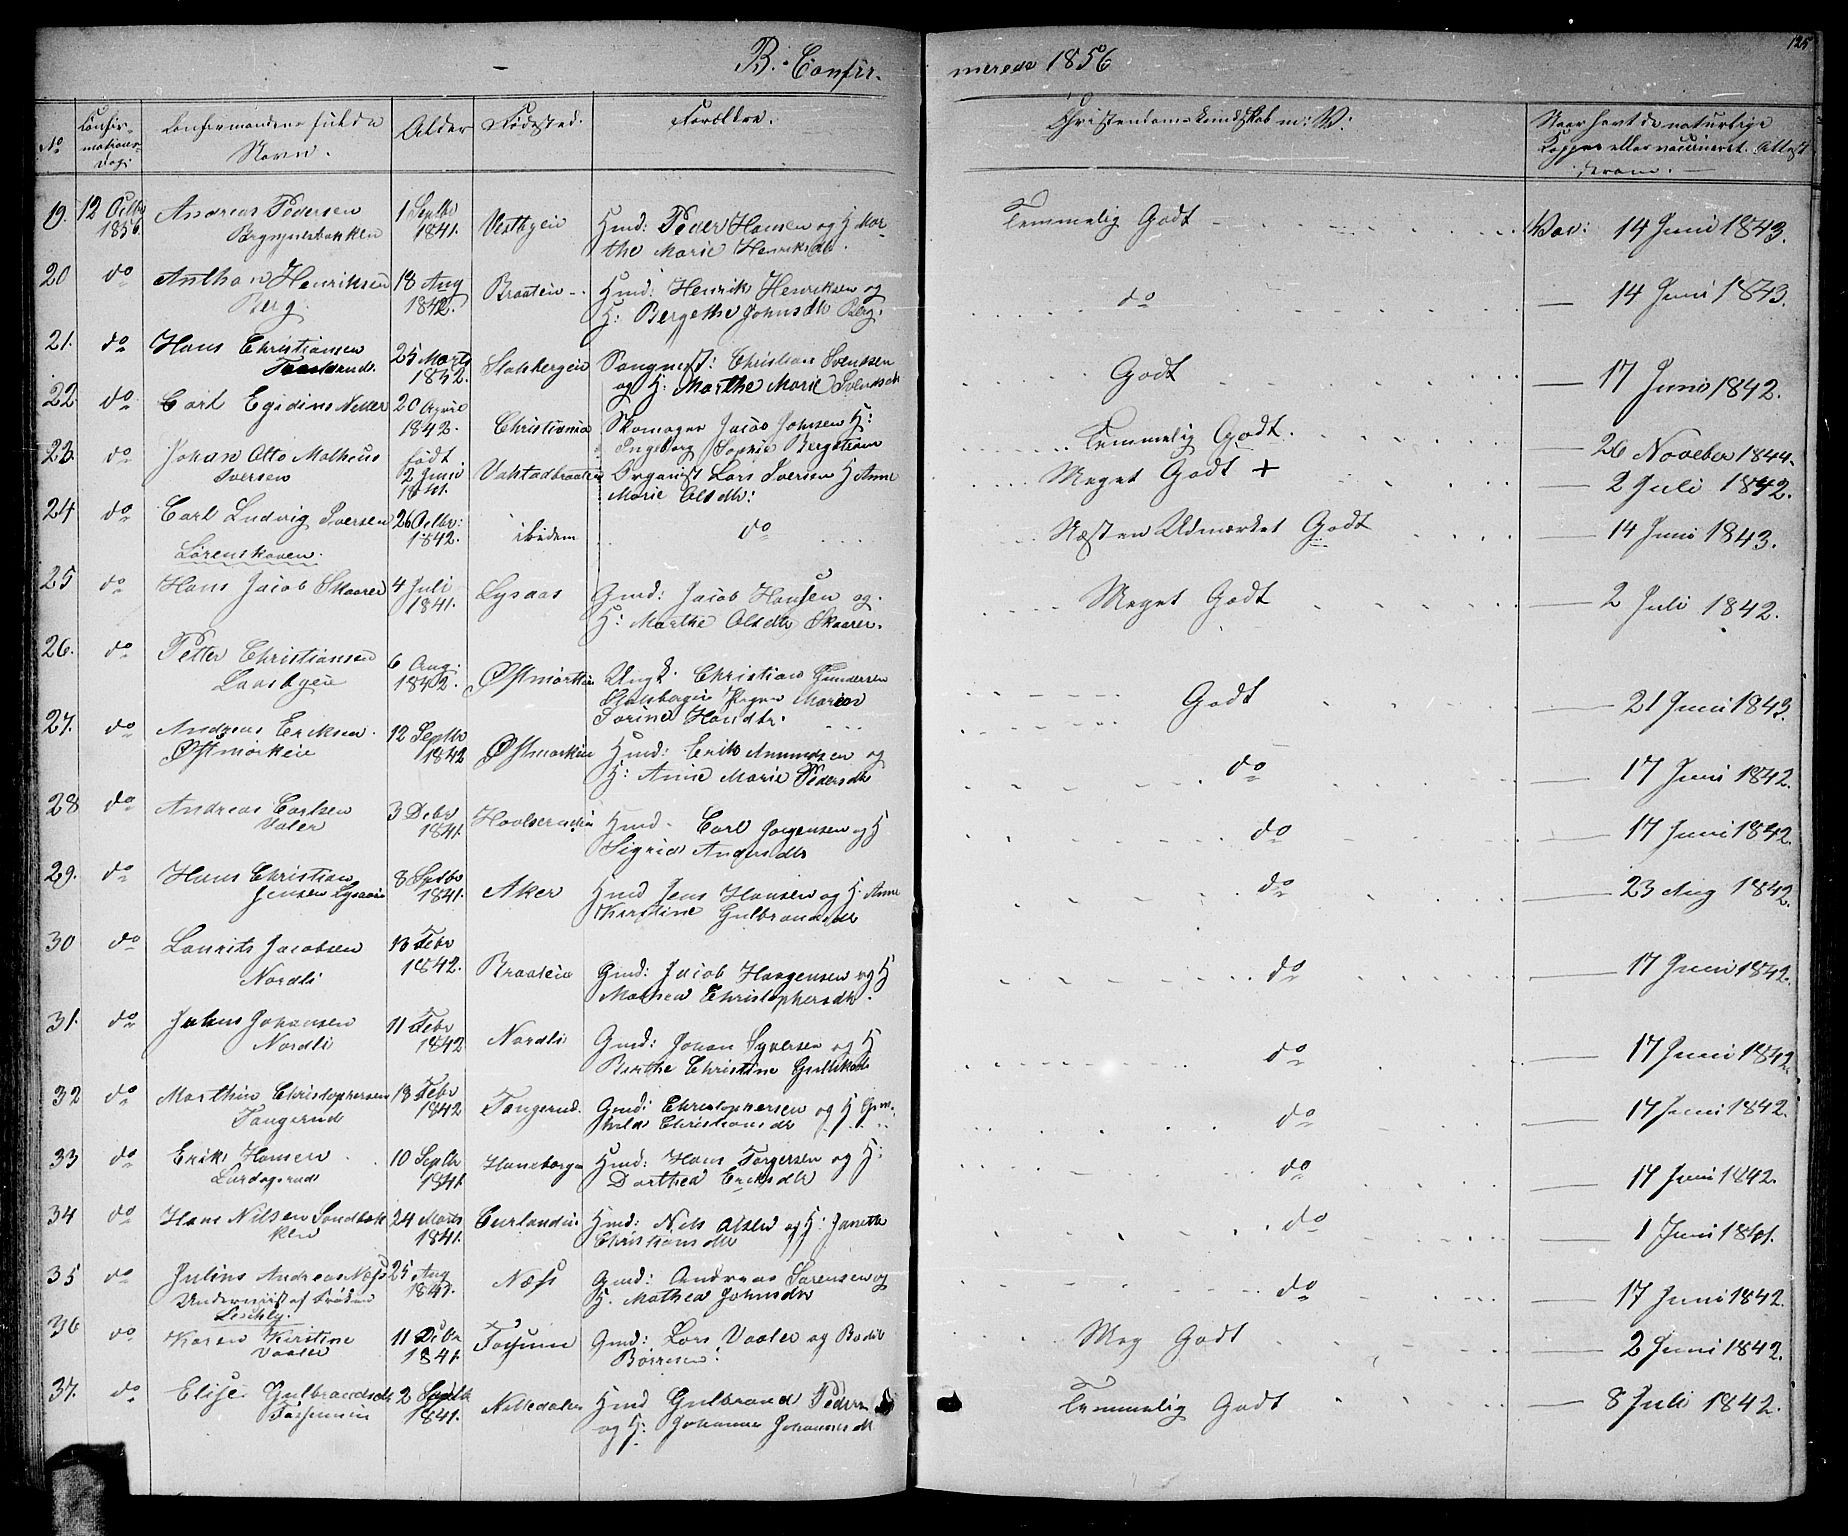 B. Confir-
merede 1856
125
No
Confir-
mations-
Dag.
Confirmandens fulde
Navn.
Alder
Fødested.
Forældre.
Christendomskundskab m: V:
Naar havt de naturlige
Kopper eller vaccineret. Attest
derom.
19. 12 Octbr Andreas Pedersen 1 Septbr Vestbyen Hmd: Peder Hansen og H Mar- Temmelig Godt Vac: 14 Juni 1843.
1856. 1841. the Marie Henriksdtr.
20 do Anthon Henriksen 18 Aug Braaten Hmd: Henrik Henriksen og do 14 Juni 1843.
Berg. 1842. H: Bergethe Johnsdtr Berg.
21. do Hans Christiansen 25 Marts Stalsbergeie Christian Svensen Godt 17 Juni 1842.
og H: Marthe Marie Svensdtr
22. do Carl Egidius 20 April Christiania Skomager Jacob Johnsen H: Temmelig Godt. 26 November 1844.
1842. Ingeborg Sophie Bergstrøm
23. do Johan Otto Matheus født Organist Lars Iversen H Anne Meget Godt + 2 Juli 1842.
Iversen 2 Juni Marie Olsdtr:
1841.
24 do Carl Ludvig Iversen 26 Octbr: ibidem do Næsten Udmærket Godt 14 Juni 1843.
Lørenskoven. 1842.
25 do Hans Jacob Skaarer 4 Juli Lysaas Gmd: Jacob Hansen og Meget Godt 2 Juli 1842.
1841. H: Marthe Olsdtr Skaarer.
26. do Petter Christiansen 6 Aug: Ungk. Christian Gundersen Godt 21 Juni 1843.
1842. Pigen Maren
Sorine Hansdtr.
27. do Andreas Eriksen 12 Septbr Østmarken Hmd: Erik Amundsen og do 17 Juni 1842.
Østmarken 1842 H: Anne Marie Pedersdtr
28 do Andreas Carlsen 3 Debr Hmd. Carl Jørgensen og H. do 17 Juni 1842.
Valer 1841. Sigrid Andersdtr
29. do Hans Christian 8 Septbr Aker Hmd Jens Hansen og H: Anne do 23 Aug 1842.
Jensen 1841. Kirstine Gulbrandsdtr
30 do Laurits Jacobsen 13 Febr Braateie Gmd: Jacob Haagensen og H do 17 Juni 1842.
Nordli 1842. Mathea Christophersdtr.
31. do Julius Johansen 11 Febr Nordli Gmd: Johan Syversen og H do 17 Juni 1842.
Nordli 1842 Berthe Christine
32 do Marthin Christophersen 13 Febr Tangerud. Gmd: Christophersen og H Gun- do 17 Juni 1842.
Tangerud 1842 hild Christiansdtr
33 do Erik Hansen 10 Septbr Haneborgen Hmd: Hans Torgersen og H: do 17 Juni 1842.
1841 Dorthea Eriksdtr
34 do Hans Nilsen Sandbak- 24 Marts Hmd: Nils Olsen og H: Janette do 1 Juni 1841.
ken 1841. Christiansdtr
35 do Julius Andreas Næss 25 Aug Næss Gmd: Andreas Sørensen og do 17 Juni 1842.
Underviist af Frøken H. Mathea Johnsdtr
36 do Karen Kirstine 11 Debr Fossum Gmd: Lars Vaaler og Bodil Meg Godt 2 Juni 1842.
Vaaler 1841. Børresen.
37. do Elise Gulbrandsdtr 2 Septbr Nittedalen Hmd Gulbrand Peders Temmelig Godt 8 Juli 1842.
1841. og H: Johanne Johannesdtr